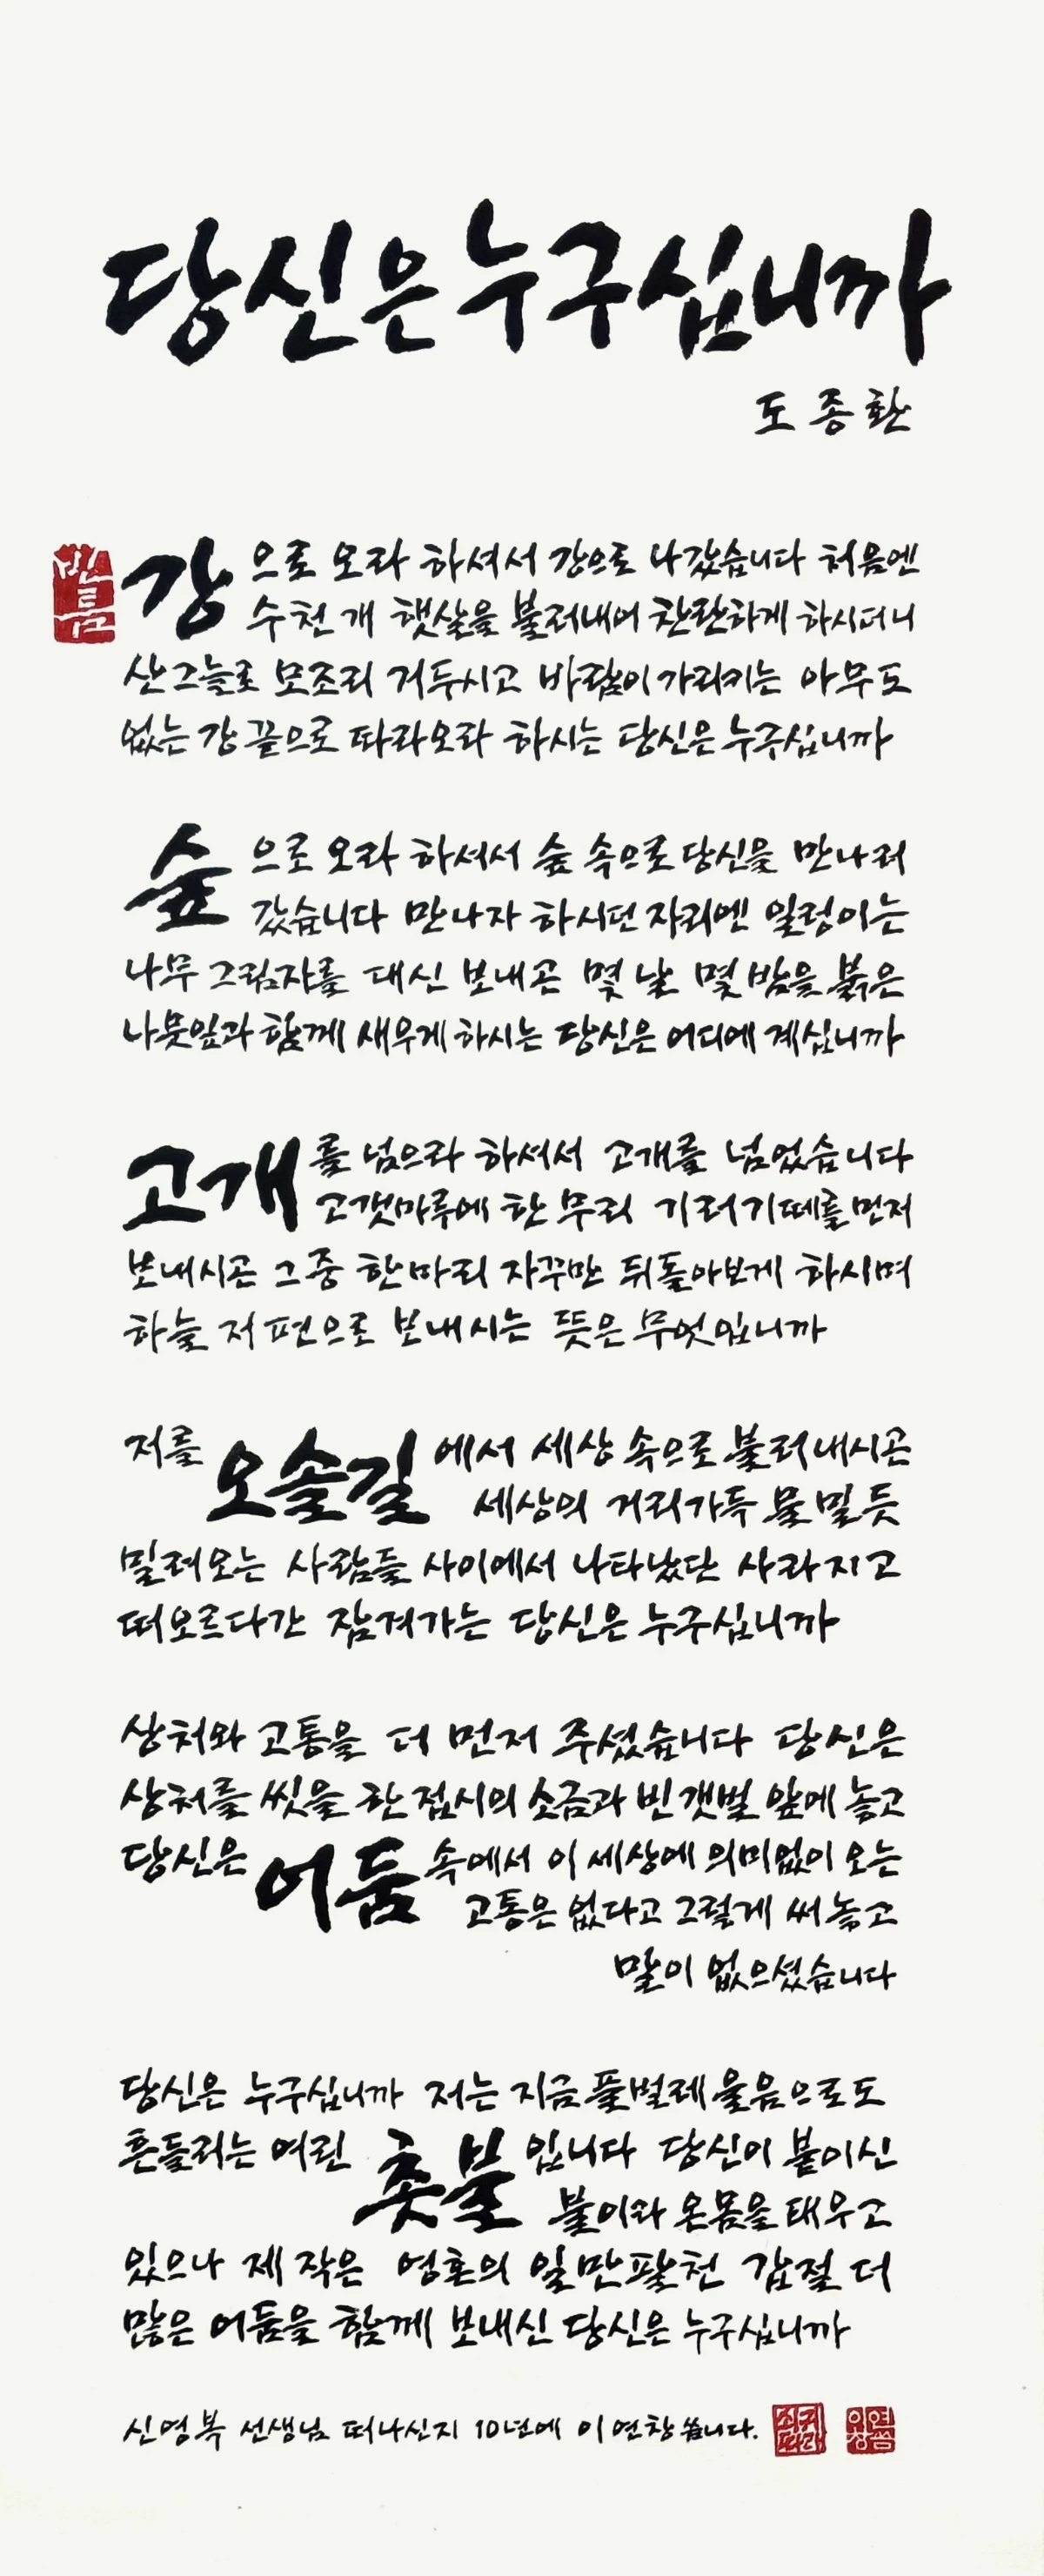 당신은 누구십니까
도종환
강으로 오라 하셔서 강으로 나갔습니다 처음엔
수천 개 햇살을 불러내어 찬란하게 하시더니
산그늘로 모조리 거두시고 바람이 가리키는 아무도
없는 강 끝으로 따라오라 하시는 당신은 누구십니까
숲으로 오라 하셔서 숲 속으로 당신을 만나러
갔습니다 만나자 하시던 자리엔 일렁이는
나무 그림자를 대신 보내곤 몇 날 몇 밤을 붉은
나뭇잎과 함께 새우게 하시는 당신은 어디에 계십니까
고개를 넘으라 하셔서 고개를 넘었습니다
고갯마루에 한 무리 기러기떼를 먼저
보내시곤 그 중 한 마리 자꾸만 뒤돌아보게 하시며
하늘 저 편으로 보내시는 뜻은 무엇입니까
저를 오솔길에서 세상 속으로 불러내시곤
세상의 거리가득 물밀듯
밀려오는 사람들 사이에서 나타났단 사라지고
떠오르다간 잠겨가는 당신은 누구십니까
상처와 고통을 더 먼저 주셨습니다 당신은
상처를 씻을 한 접시의 소금과 빈 갯벌 앞에 놓고
당신은 어둠 속에서 이 세상에 의미없이 오는
고통은 없다고 그렇게 써 놓고
말이 없으셨습니다
당신은 누구십니까 저는 지금 풀벌레 울음으로도
흔들리는 여린 촛불입니다 당신이 붙이신
불이라 온몸을 태우고
있으나 제 작은 영혼의 일만팔천 갑절 더
많은 어둠을 함께 보내신 당신은 누구십니까
신영복 선생님 떠나신지 10년에 이연창 씁니다.